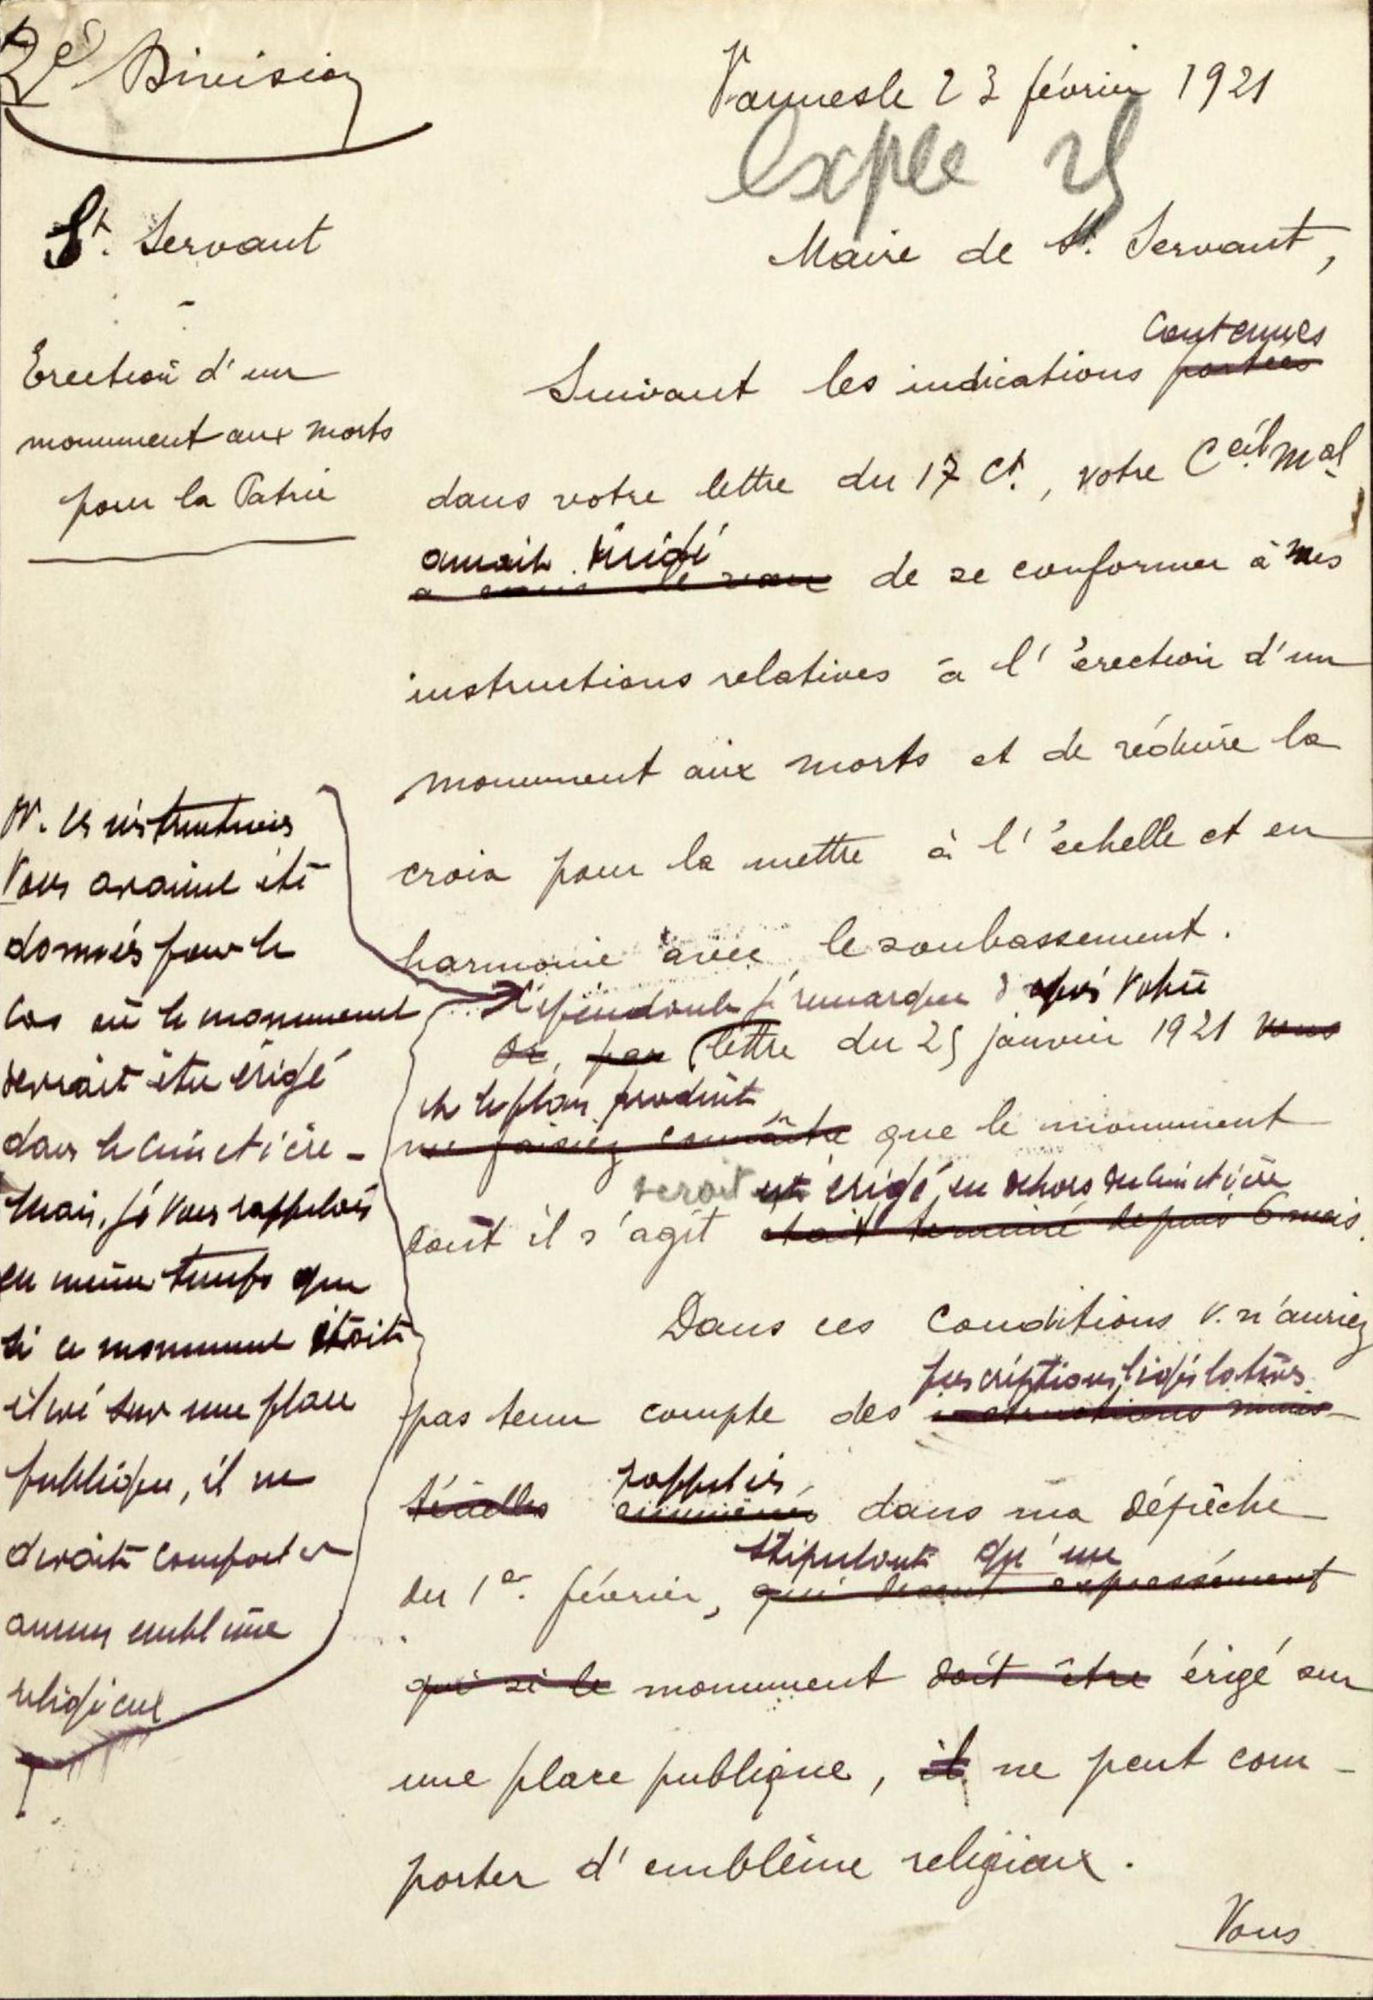 2e Division
Vannes le 23 février 1921
St. Servant
Maire de St. Servant,
Erection d'un
monument aux morts
pour la Patrie
contenues
Suivant les indications portées
dans votre lettre du 17 Ct., votre Ceil mal
aurait
de se conformer à mes
instructions relatives à l'érection d'un
monument aux morts et de réduire la
croix pour la mettre à l'échelle et en
harmonie avec le soubassement.
Vous avaient été
données pour le
cas où le monument
devrait être érigé
dans le cimetière -
Mais, je vous rappelais
en même temps que
si ce monument était
élevé sur une place
publique, il ne
devait comporter
aucun emblème
religieux
Cependant je remarque d'après votre
Or, par lettre du 25 janvier 1921 vous
et le plan produit
me faisiez connaître que le monument
serait est érigé en dehors du cimetière
dont il s'agit était terminé depuis 6 mois.
Dans ces conditions v. n'auriez
prescriptions législatives
pas tenu compte des instructions minis-
rappelées
térielles dans ma dépêche
stipulant qu'un
du 1er. février, qui disent expressément
que si le monument doit être érigé sur
une place publique, il ne peut com-
porter d'emblème religieux.
Vous